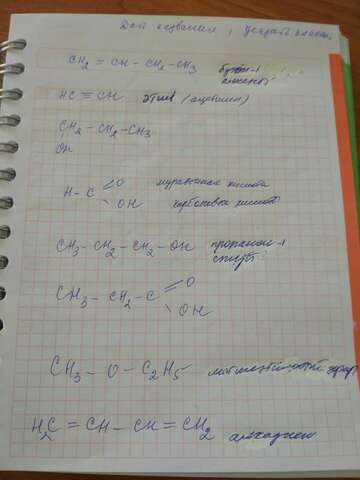 Дать названия, указать классы.
CH₂ = CH - CH₂ - CH₃ бутен-1
алкены
HC ≡ CH этин (ацетилен)
CH₂ - CH₂ - CH₃
OH
H - C = O муравьиная кислота
OH карбоновая кислота
CH₃ - CH₂ - CH₂ - OH пропанол-1
спирт
CH₃ - CH₂ - C = O
OH
CH₃ - O - C₂H₅ эфир
H₂C = CH - CH = CH₂ алкадиен